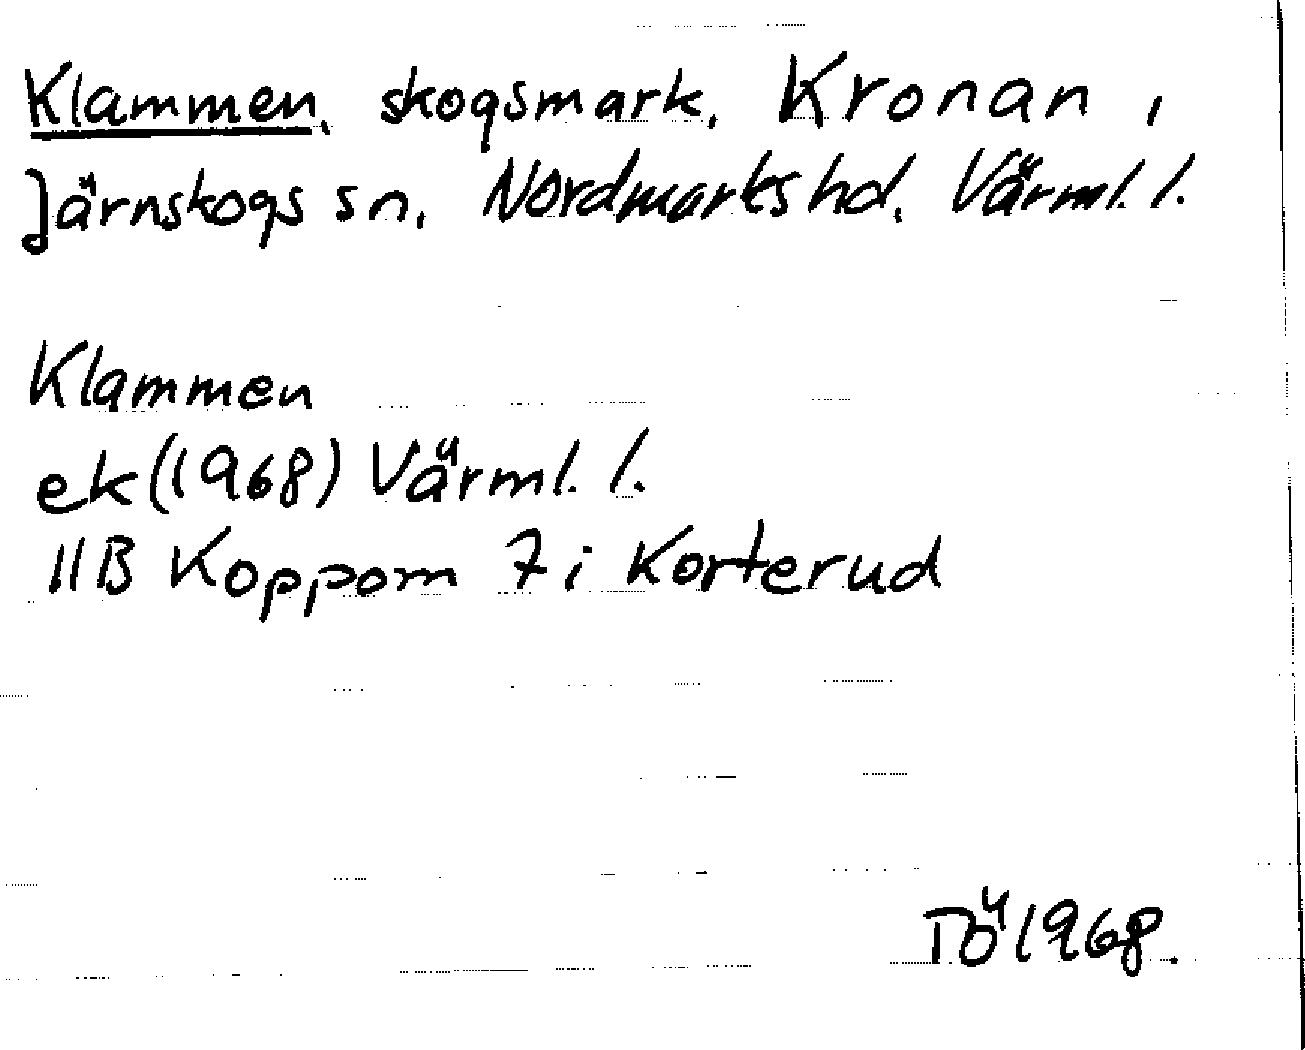 Klammen, skogsmark, Kronan,
Järnskogs sn, Nordmarks hd, Värml. l.
Klammen
ek (1968) Värml. l.
11B Koppom 7i Korterud
TÖ 1968.